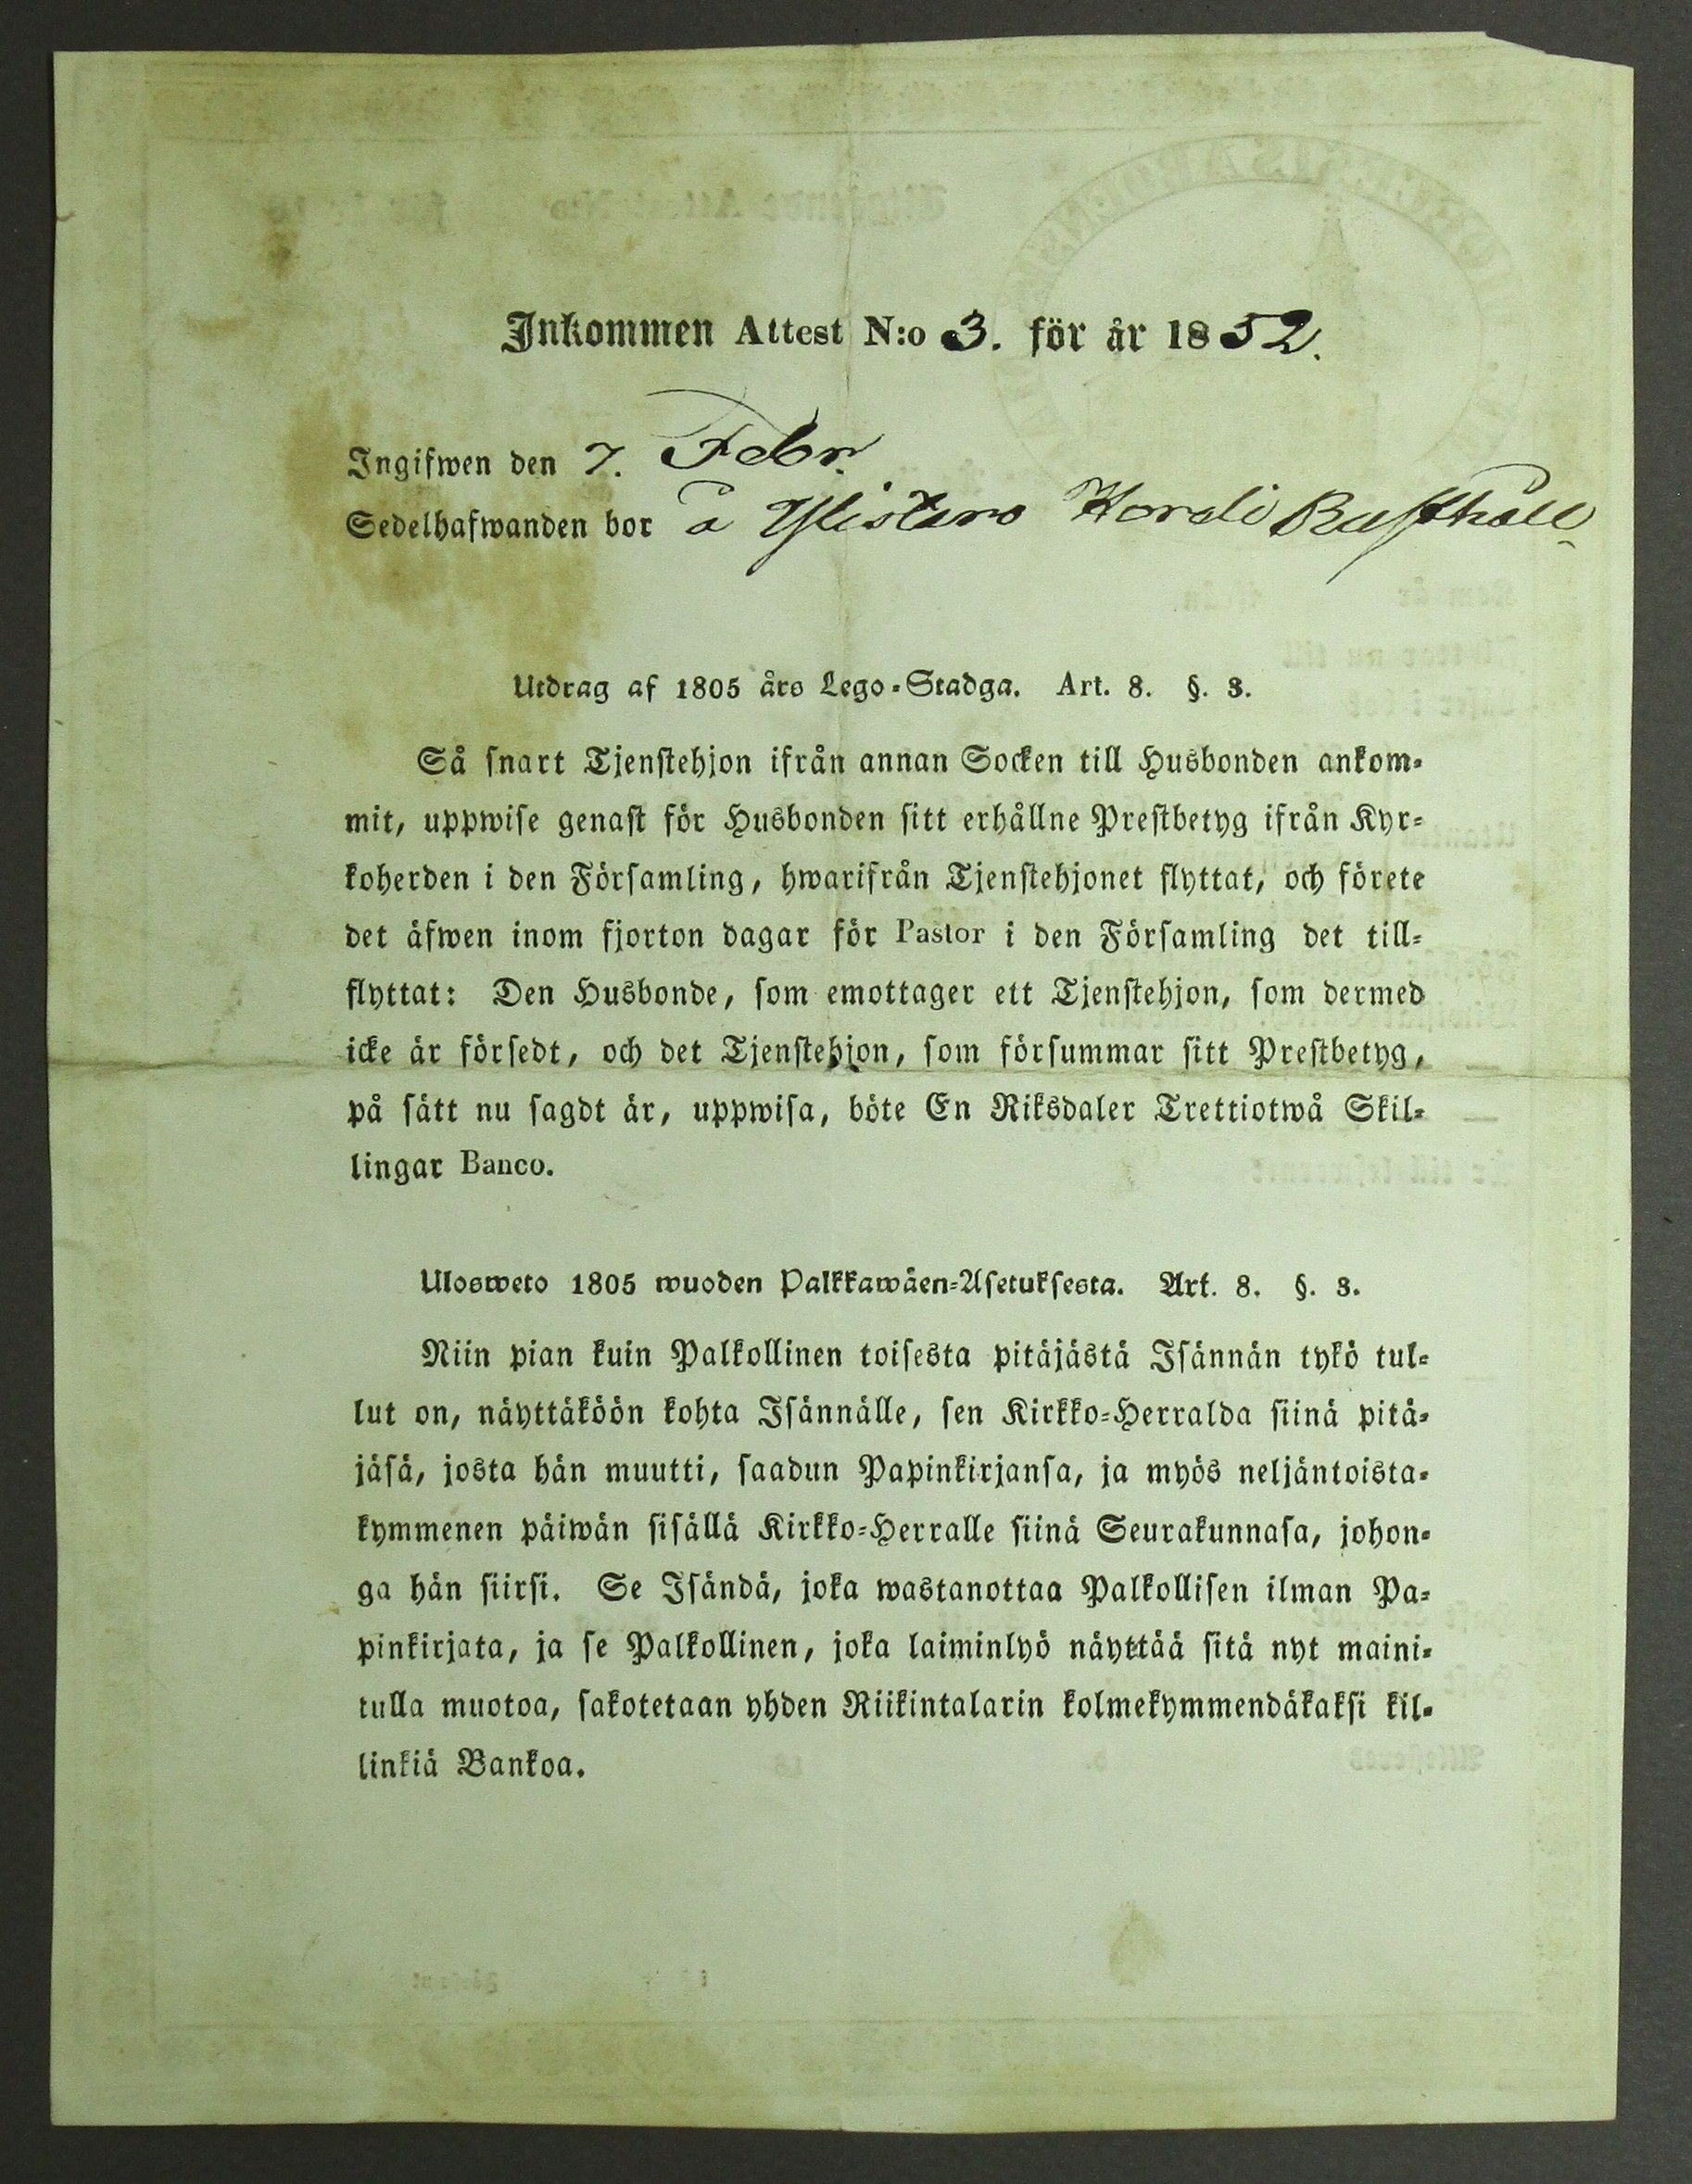 Inkommen Attest N:o 3. för år 1852.
Ingifwen den 7. Febr.
Sedelhafwanden bor å Ylistaro Korali Rusthåll
Utdrag af 1805 års Lego-Stadga. Art. 8. §. 3.
Så snart Tjenstehjon ifrån annan Socken till Husbonden ankom-
mit, uppwise genast för Husbonden sitt erhållne Prestbetyg ifrån Kyr-
koherden i den Församling, hwarifrån Tjenstehjonet flyttat, och förete
det äfwen inom fjorton dagar för Pastor i den Församling det till-
flyttat: Den Husbonde, som emottager ett Tjenstehjon, som dermed
icke är försedt, och det Tjenstehjon, som försummar sitt Prestbetyg,
på sätt nu sagdt är, uppwisa, böte En Riksdaler Trettiotwå Skil-
lingar Banco.
Ulosweto 1805 wuoden Palkkawäen-Asetuksesta. Art. 8. §. 3.
Niin pian kuin Palkollinen toisesta pitäjästä Isännän tykö tul-
lut on, näyttäköön kohta Isännälle, sen Kirkko-Herralda siinä pitä-
jäsä, josta hän muutti, saadun Papinkirjansa, ja myös neljäntoista-
kymmenen päiwän sisällä Kirkko-Herralle siinä Seurakunnasa, johon-
ga hän siirsi. Se Isändä, joka wastanottaa Palkollisen ilman Pa-
pinkirjata, ja se Palkollinen, joka laiminlyö näyttää sitä nyt maini-
tulla muotoa, sakotetaan yhden Riikintalarin kolmekymmendäkaksi kil-
linkiä Bankoa.